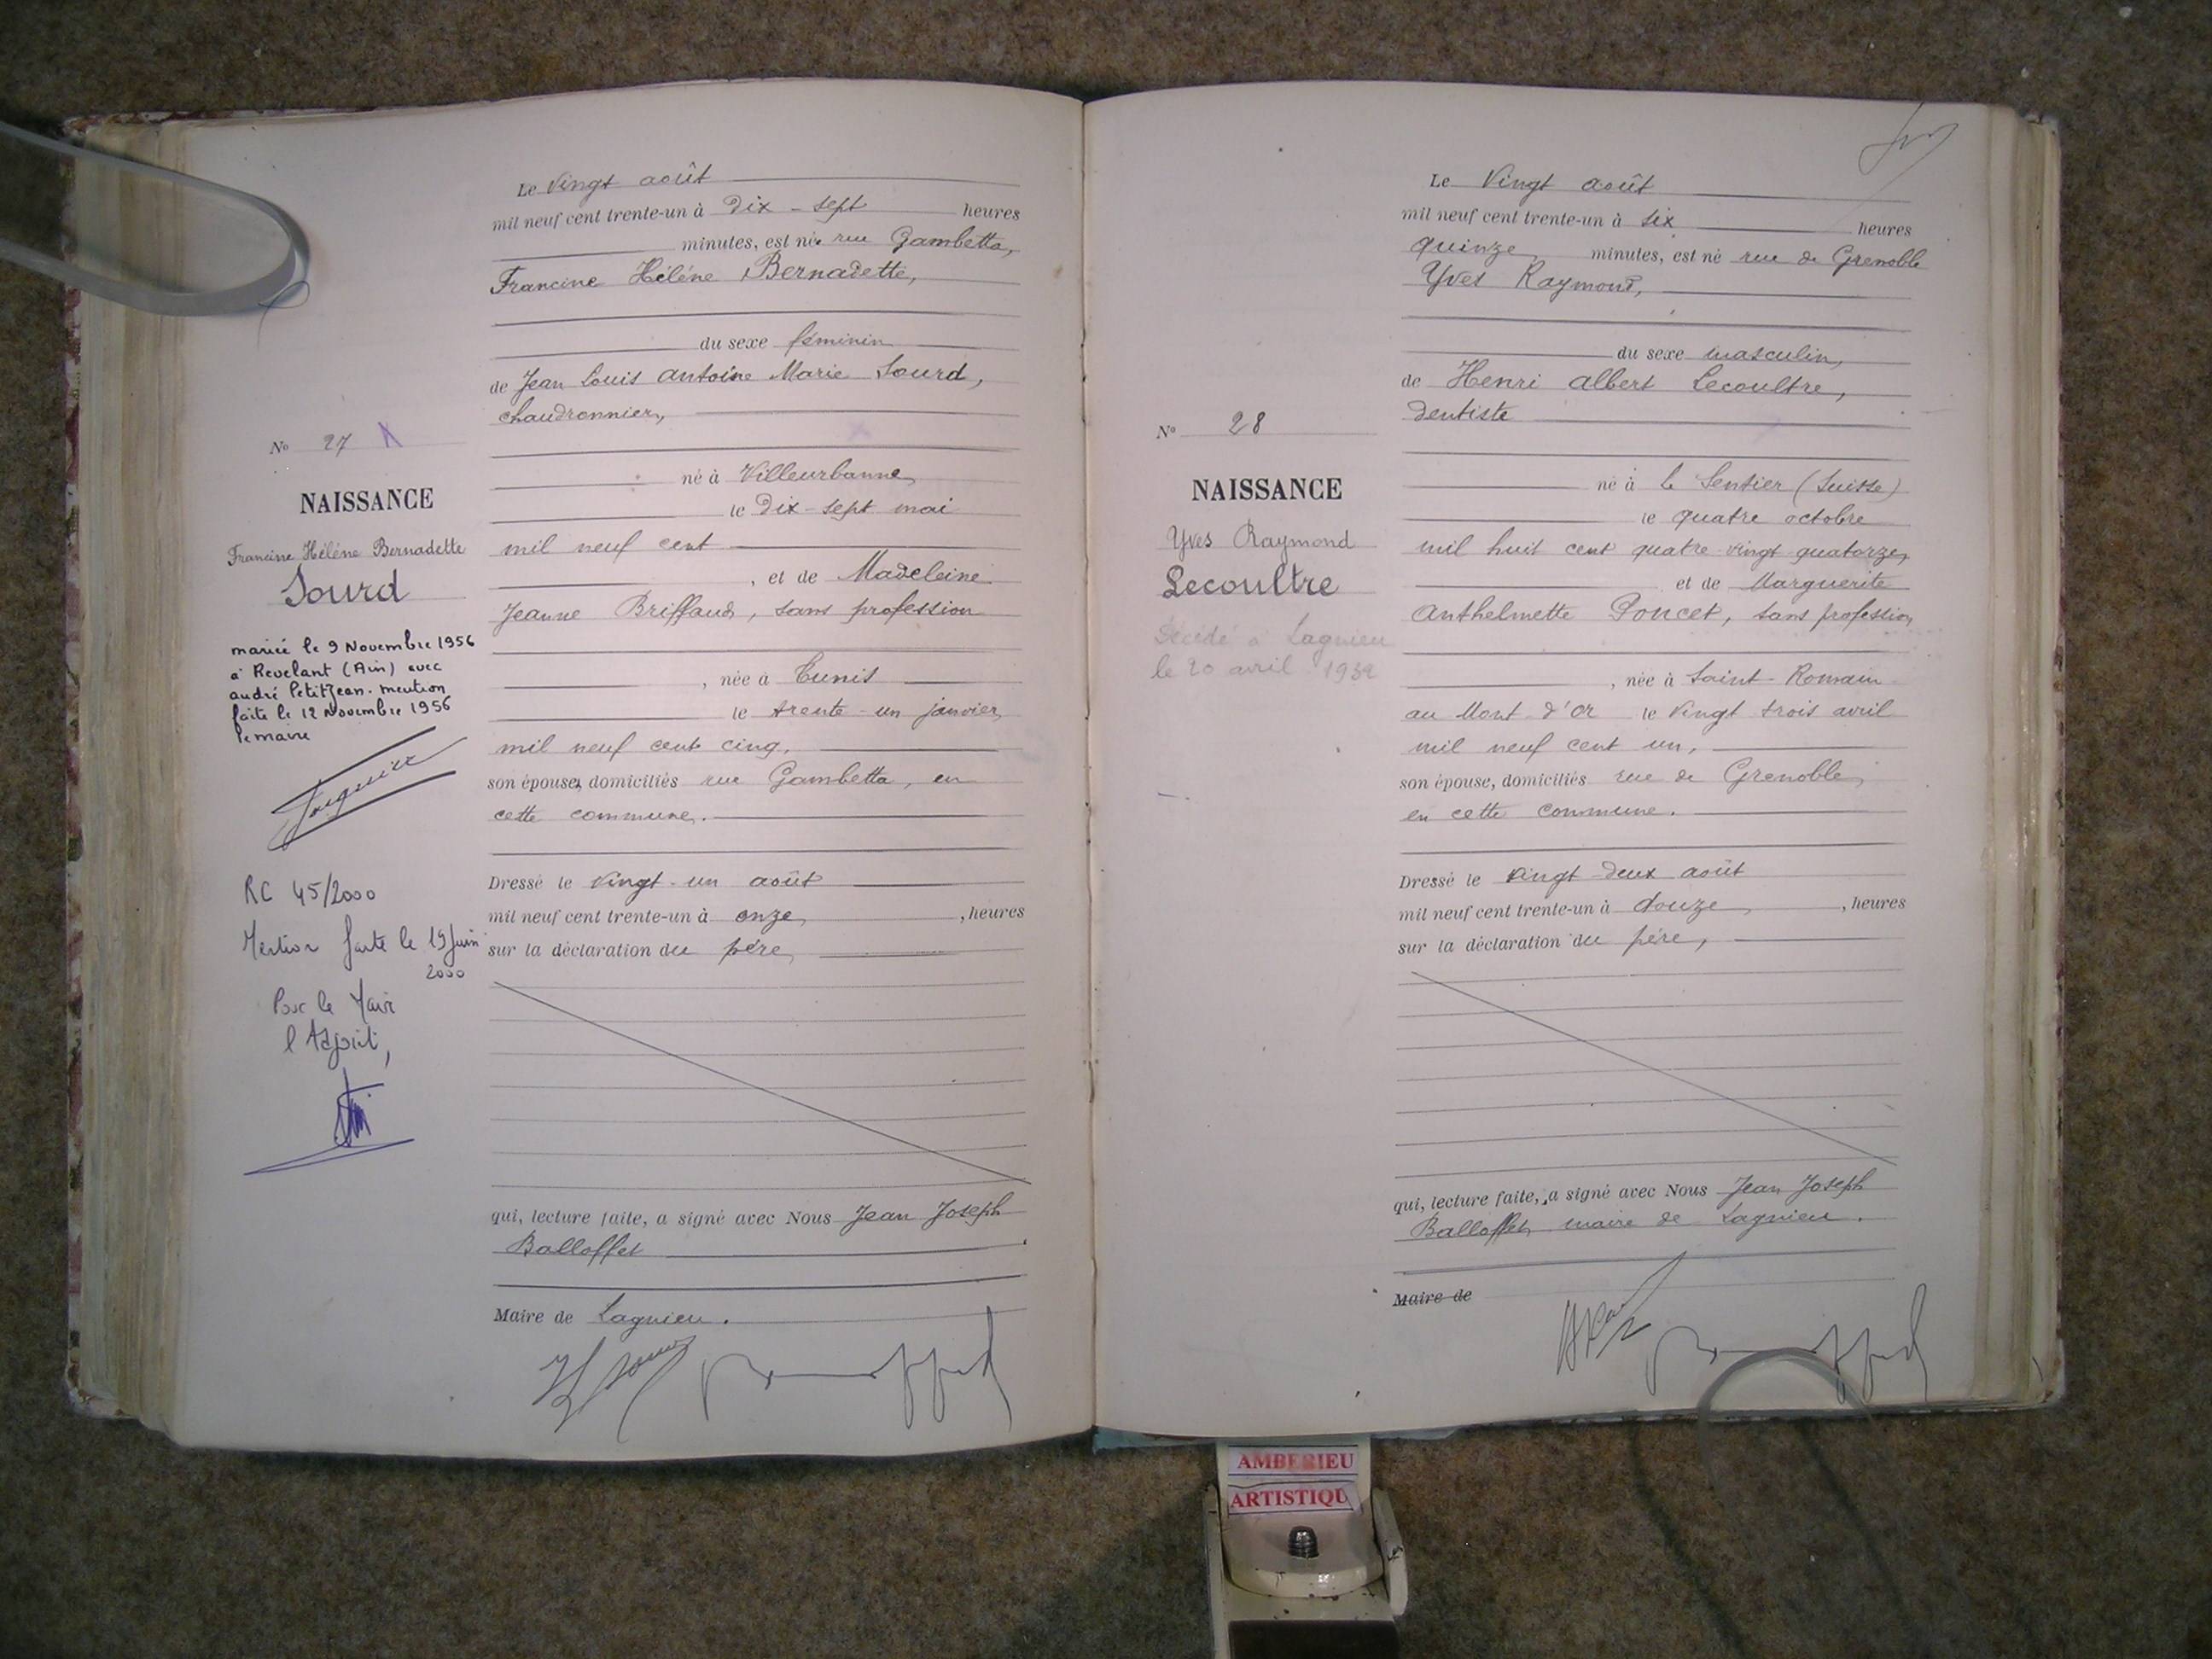 Le Vingt août
mil neuf cent trente-un à Dix-sept heures
minutes, est née rue Gambetta,
Francine Hélène Bernadette,
du sexe féminin
de Jean Louis Antoine Marie Sourd,
chaudronnier,
né à Villeurbanne
le Dix-sept mai
mil neuf cent
, et de Madeleine
Jeanne Briffaud, sans profession
, née à Tunis
le trente-un janvier
mil neuf cent cinq,
son épouse, domiciliés rue Gambetta, en
cette commune.
Dressé le vingt-un août
mil neuf cent trente-un à onze, heures
sur la déclaration du père,
qui, lecture faite, a signé avec Nous Jean Joseph
Balloffet
Maire de Lagnieu.
No 27
NAISSANCE
Francine Hélène Bernadette
Sourd
mariée le 9 Novembre 1956
à (Ain) avec
andré Petitjean. mention
faite le 12 Novembre 1956
le maire
RC 45/2000
Mention faite le 19 Juin
2000
Pour le Maire
l'Adjoint,
Le Vingt août
mil neuf cent trente-un à six heures
quinze minutes, est né rue de Grenoble
Yves Raymond,
du sexe masculin,
de Henri Albert Lecoultre,
dentiste
né à Le Sentier (Suisse)
le quatre octobre
mil huit cent quatre-vingt quatorze,
et de Marguerite
Anthelmette Poncet, sans profession
, née à Saint-Romain
au Mont d'Or le vingt trois avril
mil neuf cent un,
son épouse, domiciliés rue de Grenoble,
en cette commune.
Dressé le vingt-deux août
mil neuf cent trente-un à douze, heures
sur la déclaration du père,
qui, lecture faite, a signé avec Nous Jean Joseph
Balloffet, maire de Lagnieu.
Maire de
No 28
NAISSANCE
Yves Raymond
Lecoultre
Décédé à Lagnieu
le 20 avril
AMBERIEU
ARTISTIQU